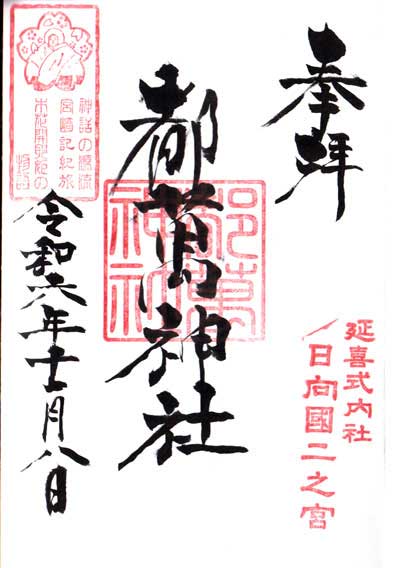 奉拝
延喜式内社
日向國二之宮
都萬神社
都萬神社
神話の源流
宮崎記紀旅
木花開耶姫の
物語
令和六年十二月八日